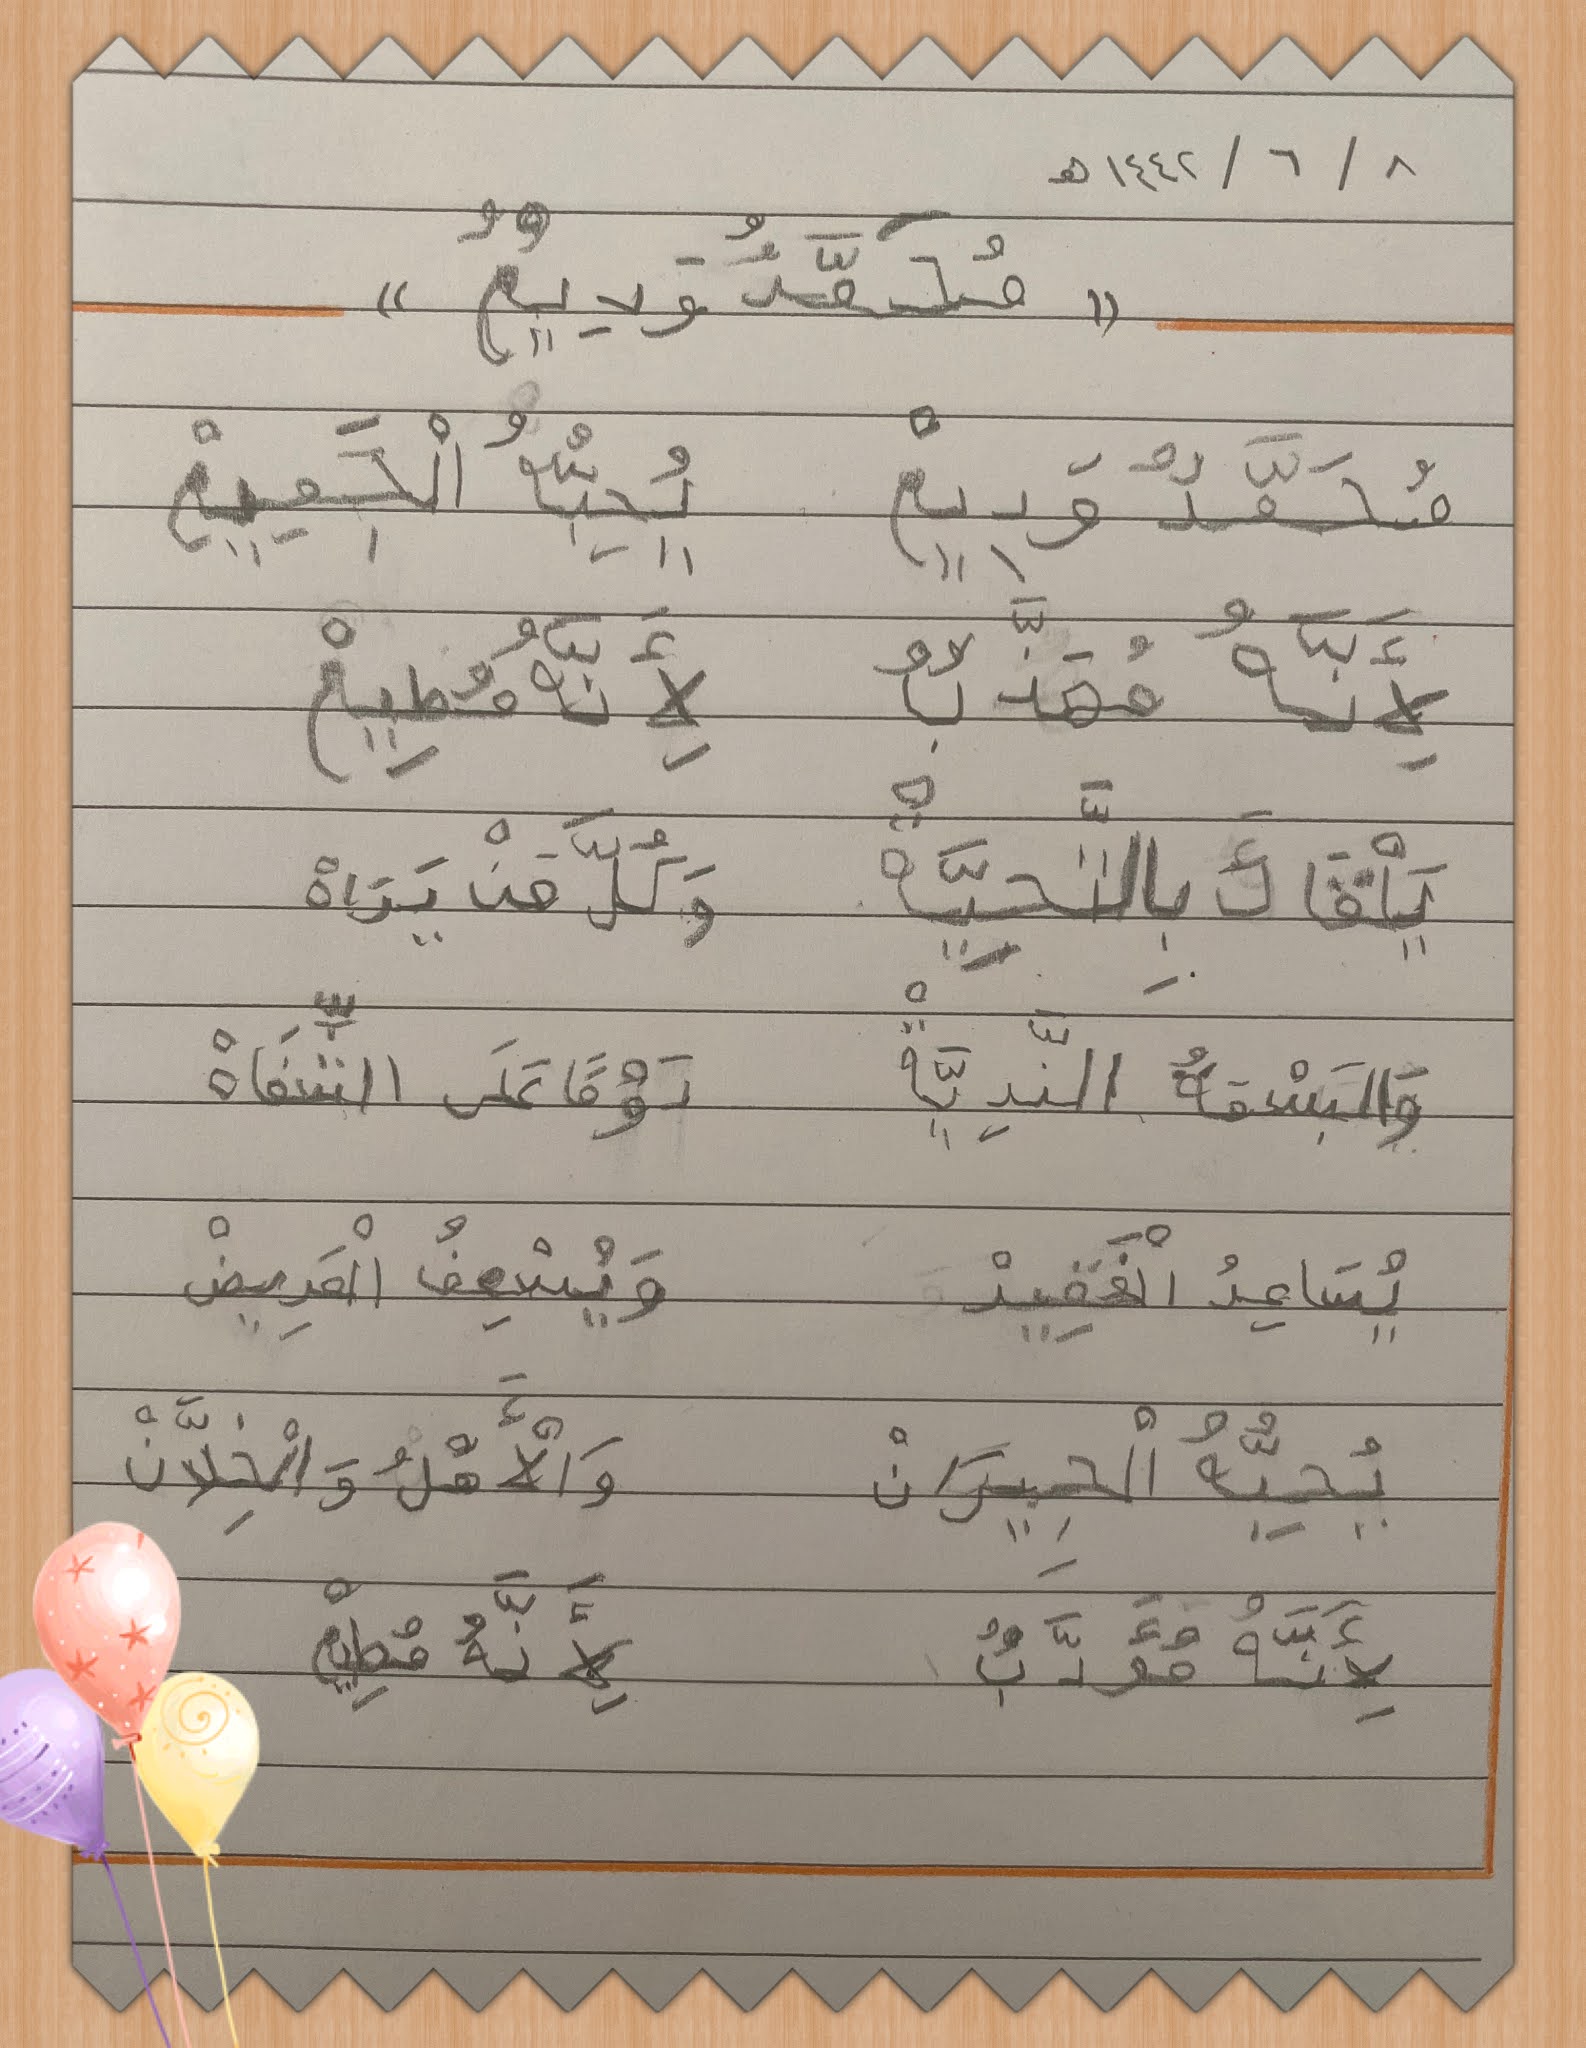 ٨ / ٦ / ١٤٤٢ هـ
« مُحَمَّدٌ وَدِيعٌ »
مُحَمَّدٌ وَدِيعْ يُحِبُّهُ الْجَمِيعْ
لِأَنَّهُ مُهَذَّبٌ لِأَنَّهُ مُطِيعْ
يَلْقَاكَ بِالتَّحِيَّةْ وَكُلَّ مَنْ يَرَاهْ
وَالبَسْمَةُ النَّدِيَّةْ دَوْمًا عَلَى الشِّفَاهْ
يُسَاعِدُ الْفَقِيرْ وَيُسْعِفُ الْمَرِيضْ
يُحِبُّهُ الْجِيرَانْ وَالْأَهْلُ وَالْخِلَّانْ
لِأَنَّهُ مُؤَدَّبٌ لِأَنَّهُ مُطِيعْ